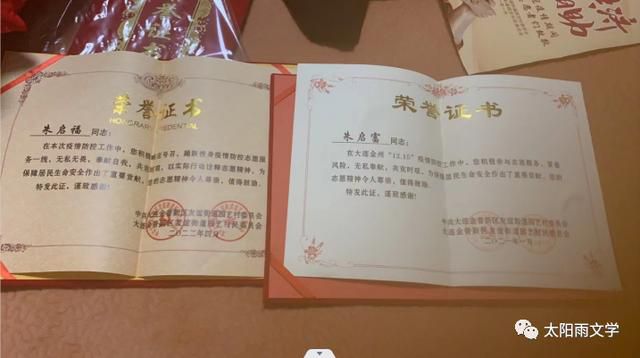 荣誉证书
HONORARY CREDENTIAL
朱启福 同志：
在本次疫情防控工作中，您积极
身疫情防控志愿服
务一线，无私无畏，奉献自我，共克时艰，以实际行动诠释志愿精神，为
保障居民生命安全作出了重要贡献，
的志愿精神令人尊崇，值得鼓励。
特发此证，谨致感谢！
中共大连金普新区友谊街道园艺村委员会
大连金普新区友谊街道园艺村民委员会
二〇二二年四月
荣誉证书
朱启富 同志：
在大连金州“12.15”疫情防控工作中，您积极参与志愿服务，冒着
风险，无私奉献，共克时艰，为保障居民生命安全作出了重要贡献，您的
志愿精神令人尊崇，值得鼓励。
特发此证，谨致感谢！
中共大连金普新区友谊街道园艺村委员会
大连金普新区友谊街道园艺村民委员会
二〇二一年一月
助
太阳雨文学